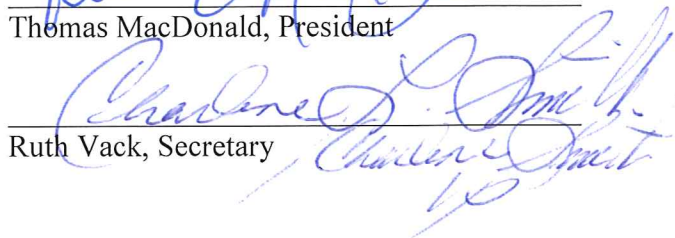 Thomas MacDonald, President
Charlene L. Smith
Ruth Vack, Secretary
Charlene Smith
VP